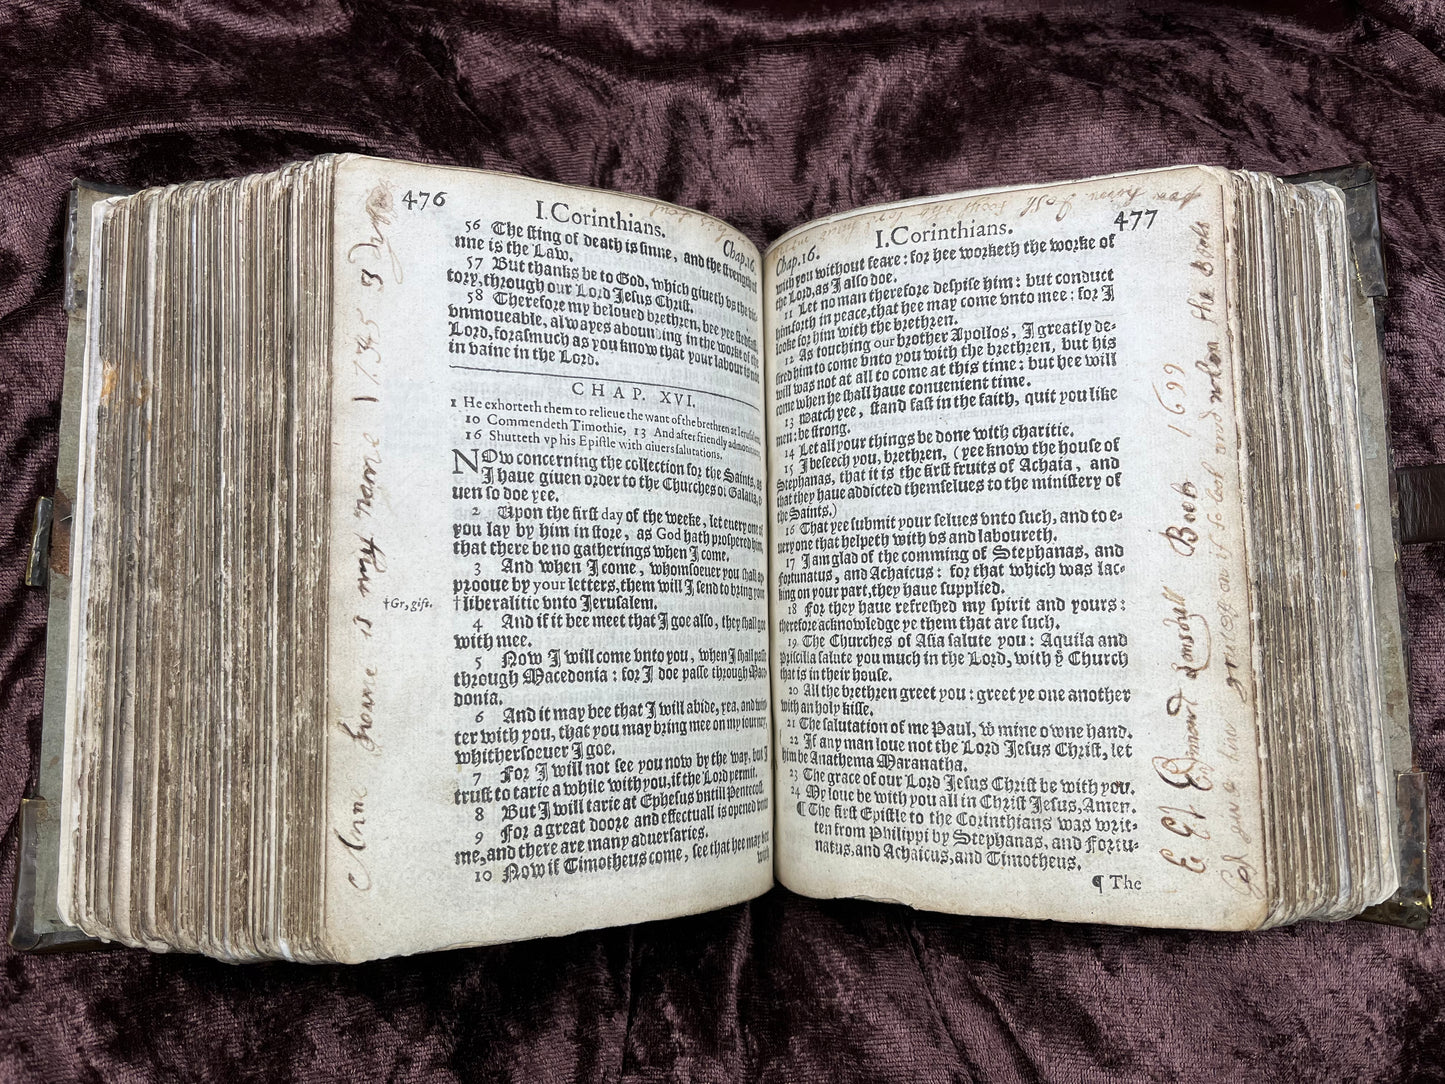 476
I. Corinthians.
Chap.16.
56 The sting of death is sinne, and the strength of
nne is the Law.
57 But thanks be to God, which giueth vs the
tory, through our Lord Jesus Christ.
58 Therefore my beloued brethren, bee yee stedfast
vnmoueable, alwayes abounding in the worke of the
Lord, forasmuch as you know that your labour is not
in vaine in the Lord.
CHAP. XVI.
1 He exhorteth them to relieue the want of the brethren at Ierusalem,
10 Commendeth Timothie, 13 And after friendly admonitions,
16 Shutteth vp his Epistle with diuers salutations.
NOw concerning the collection for the Saints, as
I haue giuen order to the Churches of Galatia,
uen so doe yee.
2 Upon the first day of the weeke, let euery one of
you lay by him in store, as God hath prospered him,
that there be no gatherings when I come.
3 And when I come, whomsoeuer you shall ap
prooue by your letters, them will I send to bring your
†Gr, gift.
†liberalitie vnto Jerusalem.
4 And if it bee meet that I goe also, they shall goe
with mee.
5 Now I will come vnto you, when I shall passe
through Macedonia: for I doe passe through Mace
donia.
6 And it may bee that I will abide, yea, and win
ter with you, that you may bring mee on my iourney,
whithersoeuer I goe.
7 For I will not see you now by the way, but I
trust to tarie a while with you, if the Lord permit.
8 But I will tarie at Ephesus vntill Pentecost.
9 For a great doore and effectuall is opened vnto
me, and there are many aduersaries.
10 Now if Timotheus come, see that hee may bee
with
my name is 1745
477
I. Corinthians.
Chap.16.
with you without feare: for hee worketh the worke of
the Lord, as I also doe.
11 Let no man therefore despise him: but conduct
him forth in peace, that hee may come vnto mee: for I
looke for him with the brethren.
12 As touching our brother Apollos, I greatly de-
sired him to come vnto you with the brethren, but his
will was not at all to come at this time: but hee will
come when he shall haue conuenient time.
13 Watch yee, stand fast in the faith, quit you like
men: be strong.
14 Let all your things be done with charitie.
15 I beseech you, brethren, (yee know the house of
Stephanas, that it is the first fruits of Achaia, and
that they haue addicted themselues to the ministery of
the Saints.)
16 That yee submit your selues vnto such, and to e-
uery one that helpeth with vs and laboureth.
17 I am glad of the comming of Stephanas, and
Fortunatus, and Achaicus: for that which was lac-
king on your part, they haue supplied.
18 For they haue refreshed my spirit and yours:
therefore acknowledge ye them that are such.
19 The Churches of Asia salute you: Aquila and
Priscilla salute you much in the Lord, with yͤ Church
that is in their house.
20 All the brethren greet you: greet ye one another
with an holy kisse.
21 The salutation of me Paul, wͭ mine owne hand.
22 If any man loue not the Lord Jesus Christ, let
him be Anathema Maranatha.
23 The grace of our Lord Jesus Christ be with you.
24 My loue be with you all in Christ Jesus, Amen.
¶ The first Epistle to the Corinthians was writ-
ten from Philippi by Stephanas, and Fortu-
natus, and Achaicus, and Timotheus.
¶ The
Edmond Book 1699
and when the Bels